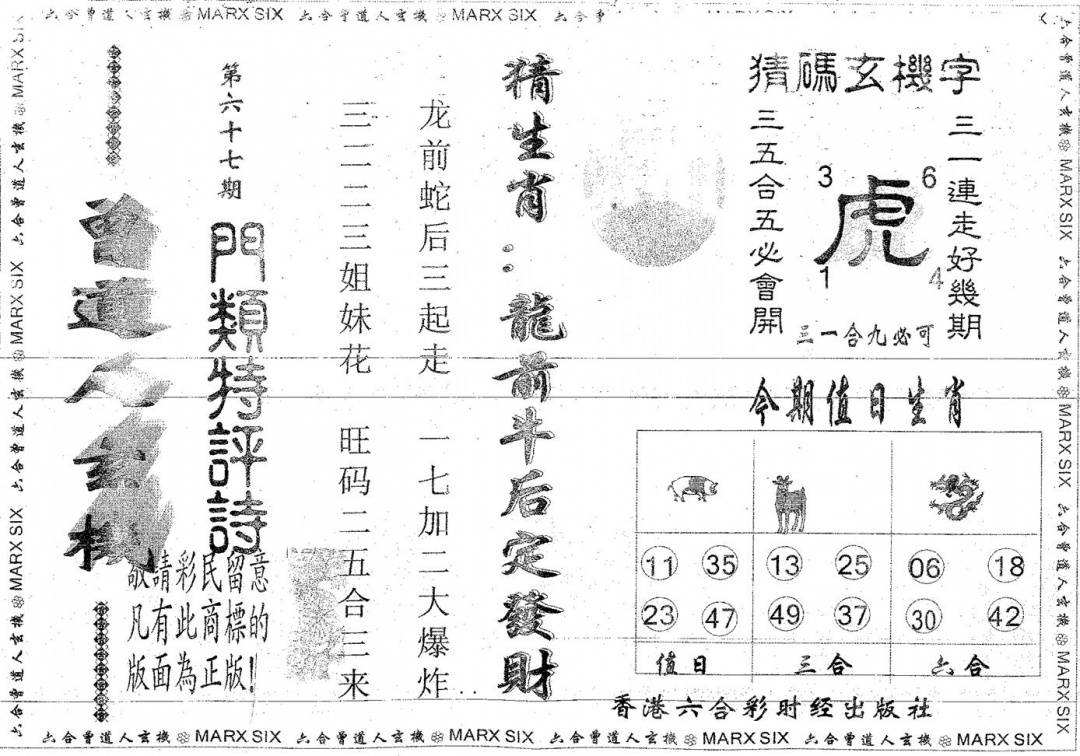 六合曾道人玄機 MARX SIX 六合曾道人玄機 MARX SIX 六合曾
猜碼玄機字
三一連走好幾期
3 6
虎
1 4
三五合五必會開
三一合九必可
今期值日生肖
11 35 13 25 06 18
23 47 49 37 30 42
值日 三合 六合
香港六合彩时经出版社
猜生肖：龍前牛后定發財
龙前蛇后三起走 一七加二大爆炸
三二二三姐妹花 旺码二五合三来
第六十七期
門類特評詩
敬請彩民留意
凡有此商標的
版面為正版！
曾道人玄機
六合曾道人玄機 MARX SIX 六合曾道人玄機 MARX SIX 六合曾道人玄機 MARX SIX 六合曾道人玄機 MARX SIX
六合曾道人玄機 MARX SIX 六合曾道人玄機 MARX SIX 六合曾道人玄機 MARX SIX
六合曾道人玄機 MARX SIX 六合曾道人玄機 MARX SIX 六合曾道人玄機 MARX SIX